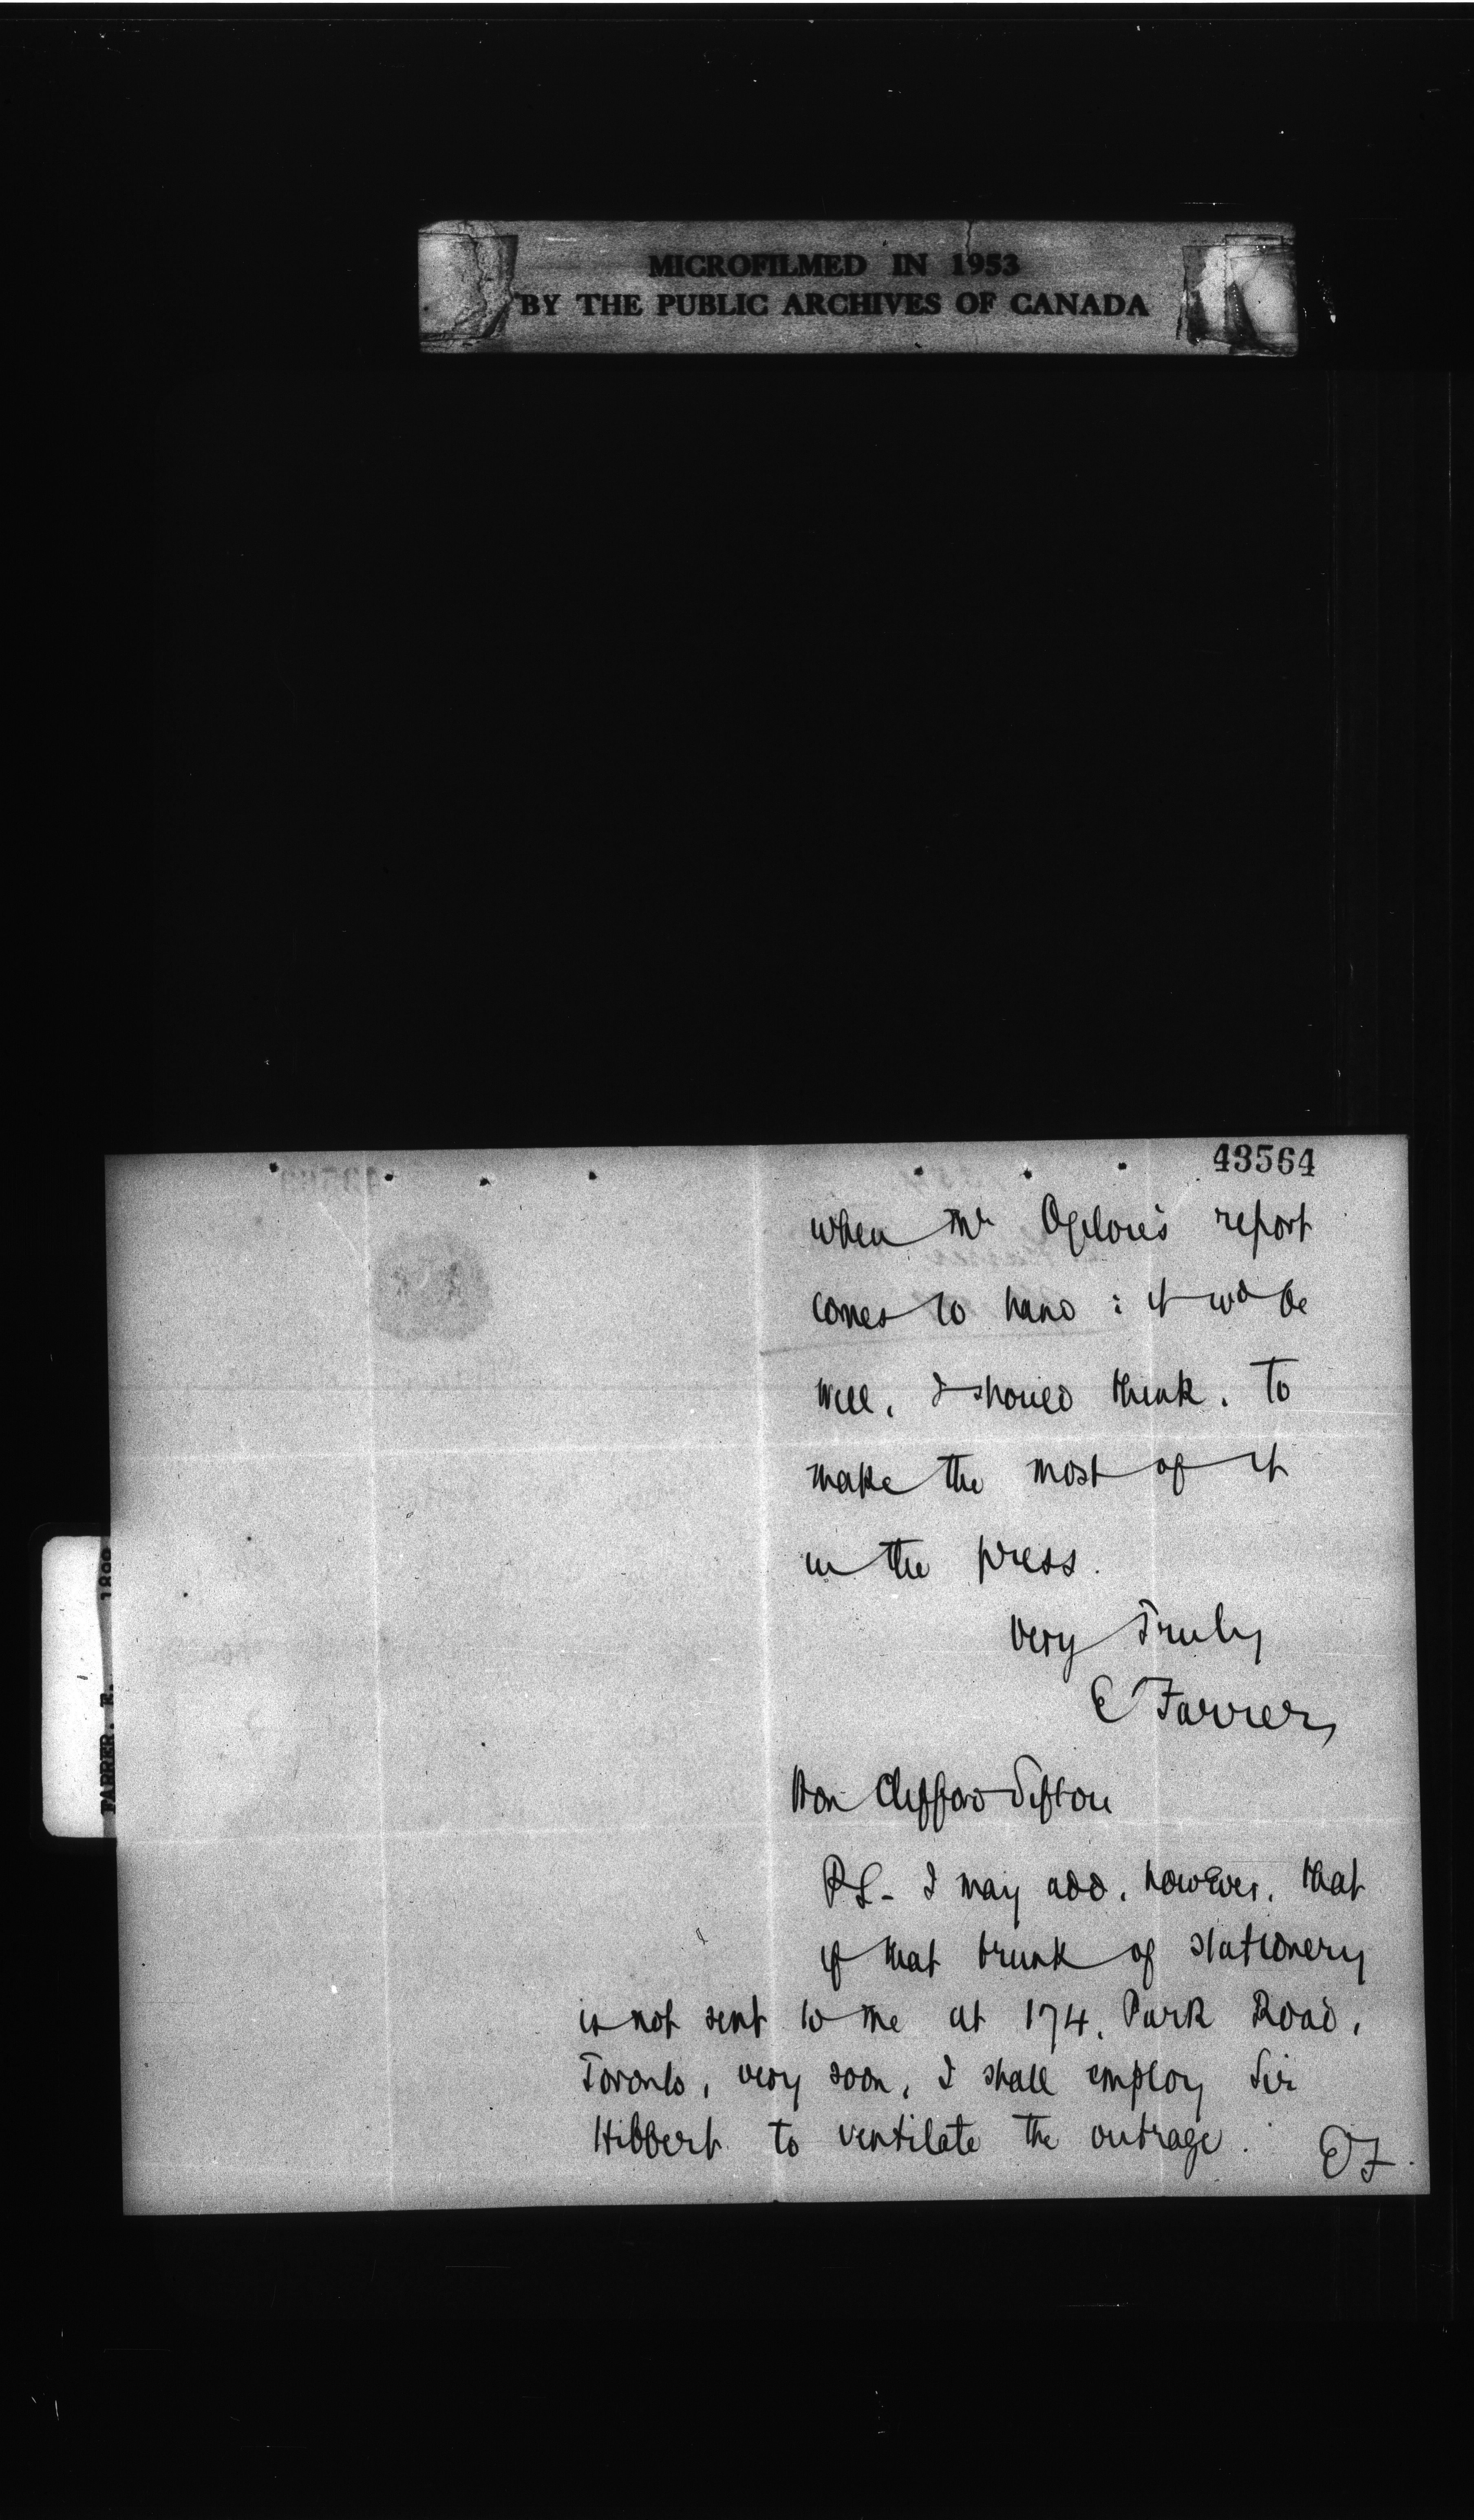 MICROFILMED IN 1953
BY THE PUBLIC ARCHIVES OF CANADA
43564
when Mr Ogilvie's report
comes to hand : it wd be
well, I should think, to
make the most of it
in the press.
Very Truly
E Farrer
Hon Clifford Sifton
PS - I may add, however, that
if that trunk of stationery
is not sent to me at 174, Park Road,
Toronto, very soon, I shall employ Sir
Hibbert to ventilate the outrage.
EF.
FARRER, E. 1899